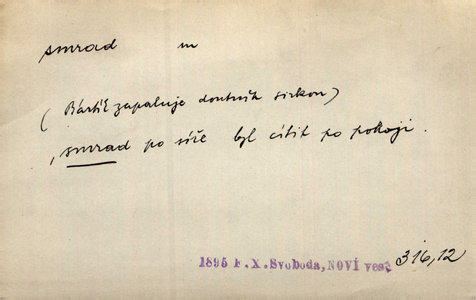 smrad m
(Bártík zapaluje doutník sirkou)
, smrad po síře byl cítit po pokoji.
1895 F.X.Svoboda, NOVÍ vesj 316,12